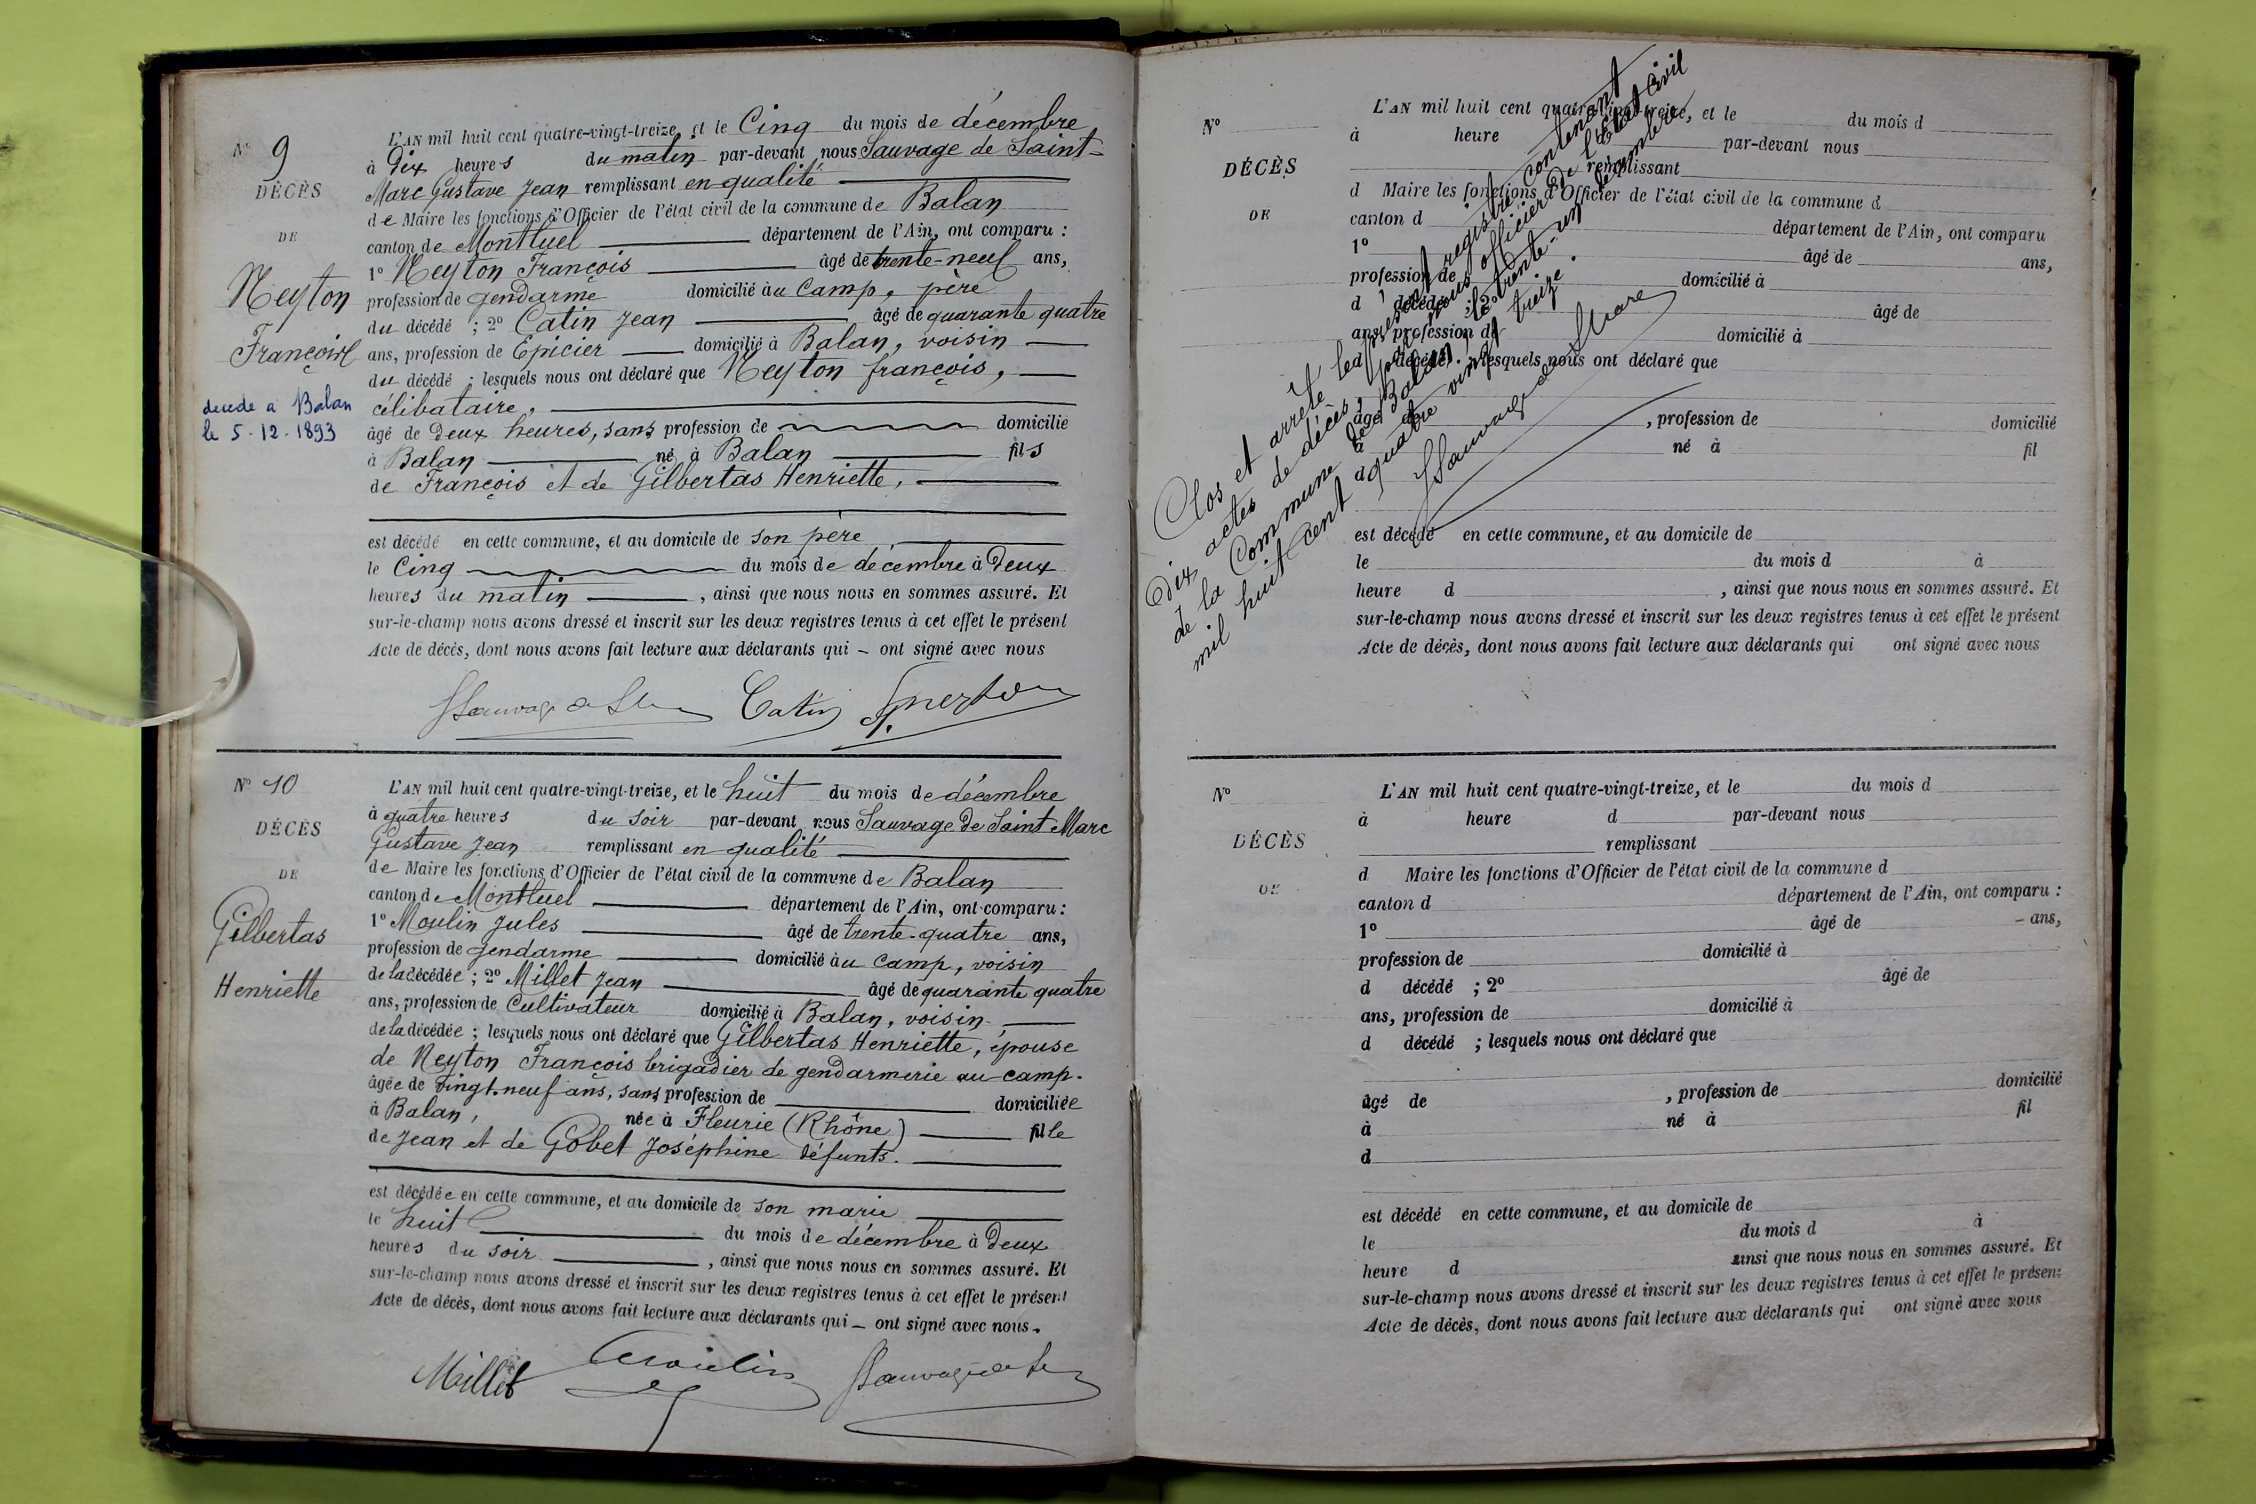 N° 9
DÉCÈS
DE
Neyton
François
decede a Balan
le 5-12-1893
L'AN mil huit cent quatre-vingt-treize, et le Cinq du mois de décembre
à Dix heures du matin par-devant nous Sauvage de Saint-
Marc Gustave Jean remplissant en qualité
de Maire les fonctions d'Officier de l'état civil de la commune de Balan
canton de Montluel département de l'Ain, ont comparu :
1° Neyton François âgé de trente-neuf ans,
profession de gendarme domicilié au Camp, père
du décédé ; 2° Catin Jean âgé de quarante quatre
ans, profession de Epicier domicilié à Balan, voisin
du décédé ; lesquels nous ont déclaré que Neyton françois,
célibataire,
âgé de Deux heures, sans profession de domicilié
à Balan né à Balan fils
de François et de Gilbertas Henriette,
est décédé en cette commune, et au domicile de son père
le Cinq du mois de décembre à Deux
heures du matin , ainsi que nous nous en sommes assuré. Et
sur-le-champ nous avons dressé et inscrit sur les deux registres tenus à cet effet le présent
Acte de décès, dont nous avons fait lecture aux déclarants qui – ont signé avec nous
Catin
N° 10
DÉCÈS
DE
Gilbertas
Henriette
L'AN mil huit cent quatre-vingt-treize, et le huit du mois de décembre
à quatre heures du soir par-devant nous Sauvage de Saint Marc
Gustave Jean remplissant en qualité
de Maire les fonctions d'Officier de l'état civil de la commune de Balan
canton de Montluel département de l'Ain, ont comparu :
1° Moulin Jules âgé de trente-quatre ans,
profession de gendarme domicilié au camp, voisin
de la décédée ; 2° Millet Jean âgé de quarante quatre
ans, profession de Cultivateur domicilié à Balan, voisin
de la décédée ; lesquels nous ont déclaré que Gilbertas Henriette, épouse
de Neyton François brigadier de gendarmerie au camp.
âgée de vingt-neuf ans, sans profession de domiciliée
à Balan, née à Fleurie (Rhône) fille
de Jean et de Gobet Joséphine défunts.
est décédée en cette commune, et au domicile de son marie
le huit du mois de décembre à Deux
heures du soir , ainsi que nous nous en sommes assuré. Et
sur-le-champ nous avons dressé et inscrit sur les deux registres tenus à cet effet le présent
Acte de décès, dont nous avons fait lecture aux déclarants qui – ont signé avec nous.
Millet Moulin
N°
DÉCÈS
DE
L'AN mil huit cent quatre-vingt-treize, et le du mois d
à heure par-devant nous
remplissant
d Maire les fonctions d'Officier de l'état civil de la commune d
canton d département de l'Ain, ont comparu
1° âgé de ans,
profession de domicilié à
d décédé ; 2° âgé de
ans, profession de domicilié à
d décédé ; lesquels nous ont déclaré que
âgé de , profession de domicilié
à né à fil
d
est décédé en cette commune, et au domicile de
le du mois d à
heure d , ainsi que nous nous en sommes assuré. Et
sur-le-champ nous avons dressé et inscrit sur les deux registres tenus à cet effet le présent
Acte de décès, dont nous avons fait lecture aux déclarants qui ont signé avec nous
Clos et arrêté le présent registre contenant
Dix actes de décès, par nous officier de l'état civil
de la Commune de Balan le trente-un décembre
mil huit cent quatre vingt treize.
N°
DÉCÈS
DE
L'AN mil huit cent quatre-vingt-treize, et le du mois d
à heure d par-devant nous
remplissant
d Maire les fonctions d'Officier de l'état civil de la commune d
canton d département de l'Ain, ont comparu :
1° âgé de ans,
profession de domicilié à
d décédé ; 2° âgé de
ans, profession de domicilié à
d décédé ; lesquels nous ont déclaré que
âgé de , profession de domicilié
à né à fil
d
est décédé en cette commune, et au domicile de
le du mois d à
heure d ainsi que nous nous en sommes assuré. Et
sur-le-champ nous avons dressé et inscrit sur les deux registres tenus à cet effet le présent
Acte de décès, dont nous avons fait lecture aux déclarants qui ont signé avec nous